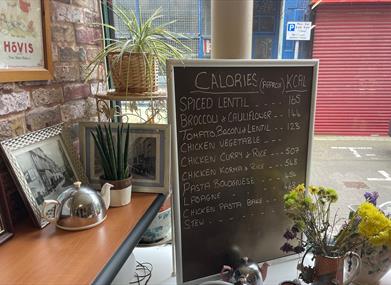 HOVIS
CALORIES (APPROX) KCAL
SPICED LENTIL 165
BROCCOLI & CAULIFLOWER 144
TOMATO, BACON & LENTIL 123
CHICKEN VEGETABLE
CHICKEN CURRY & RICE 507
CHICKEN KORMA & RICE 548
PASTA BOLOGNAISE
LASAGNE
CHICKEN PASTA BAKE
STEW
P